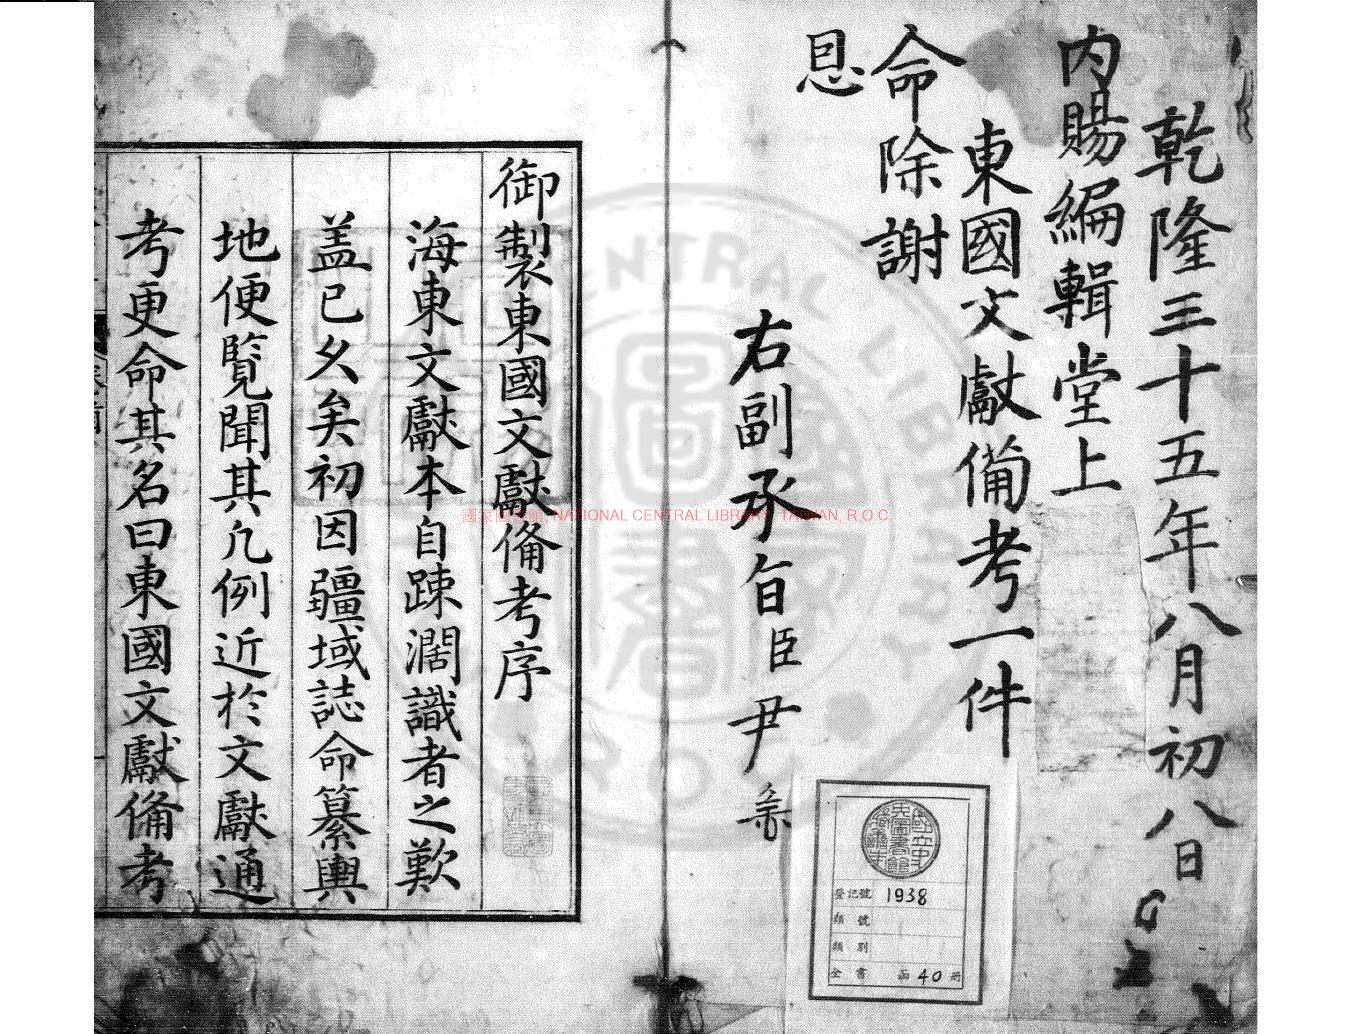 乾隆三十五年八月初八日
内賜編輯堂上
東國文獻備考一件
命除謝
恩
右副承旨臣尹
登記號 1938
類號
類別
全書 函 40 册
御製東國文獻備考序
海東文獻本自踈濶識者之歎
盖已久矣初因疆域誌命纂輿
地便覧聞其凢例近於文獻通
考更命其名曰東國文獻備考
國家圖書館 NATIONAL CENTRAL LIBRARY, TAIWAN, R.O.C
CENTRAL LIBRARY
R O C